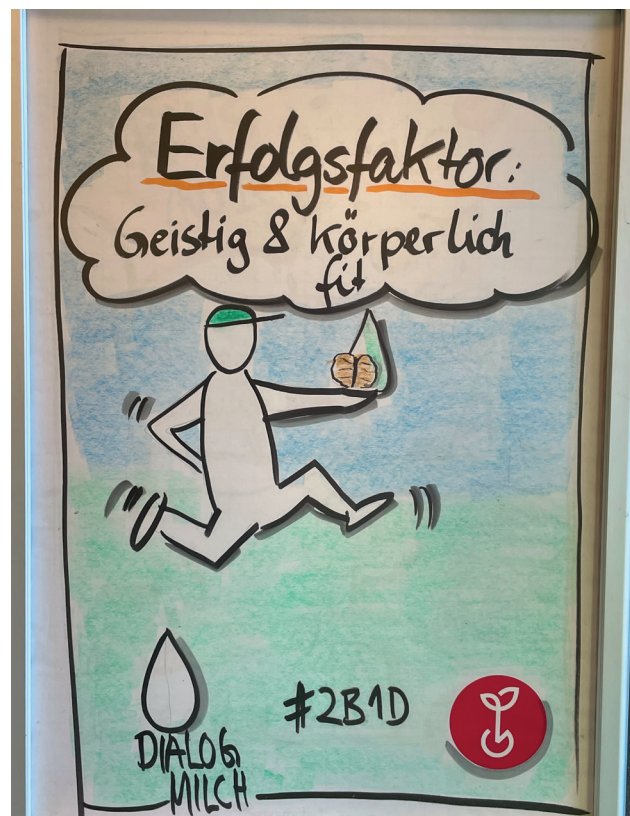 Erfolgsfaktor:
Geistig & körperlich
fit
DIALOG
MILCH
#2B1D